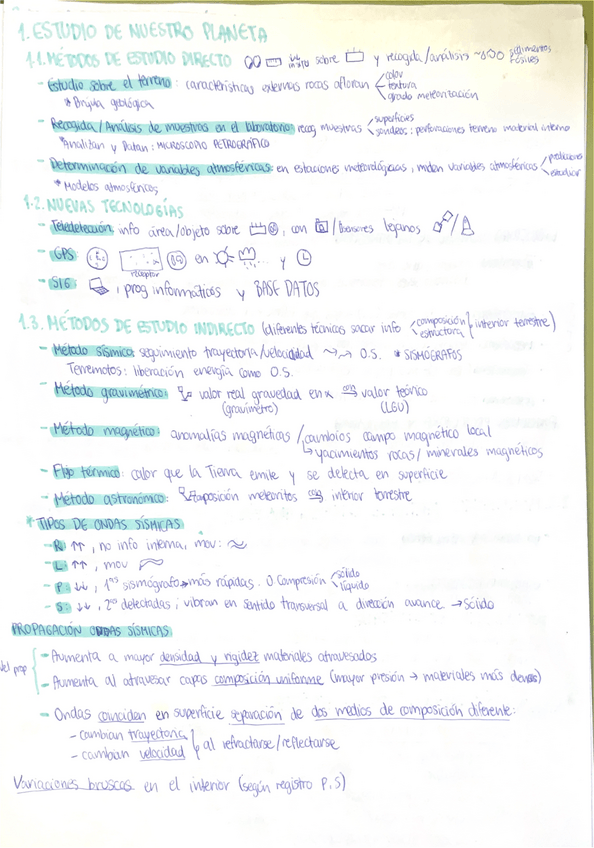 1. ESTUDIO DE NUESTRO PLANETA
1.1. MÉTODOS DE ESTUDIO DIRECTO in situ sobre y recogida/análisis sedimentos fósiles
- Estudio sobre el terreno: características externas rocas afloran color textura grado meteorización
* Brújula geológica
- Recogida/Análisis de muestras en el laboratorio: recog muestras superficies sondeos: perforaciones terreno material interno
* Analizan y Datan: MICROSCOPIO PETROGRÁFICO
- Determinación de variables atmosféricas: en estaciones meteorológicas, miden variables atmosféricas predicciones estudiar
* Modelos atmosféricos
1.2. NUEVAS TECNOLOGÍAS
- Teledetección: info área/objeto sobre , con / sensores lejanos /
- GPS: en ... y
receptor
- SIG: , prog informáticos y BASE DATOS
1.3. MÉTODOS DE ESTUDIO INDIRECTO (diferentes técnicas sacar info composición estructura interior terrestre)
- Método sísmico: seguimiento trayectoria/velocidad O.S. * SISMÓGRAFOS
Terremotos: liberación energía como O.S.
- Método gravimétrico: valor real gravedad en x con valor teórico
(gravímetro) (LGU)
- Método magnético: anomalías magnéticas / cambios campo magnético local
↳ yacimientos rocas/minerales magnéticos
- Flujo térmico: calor que la Tierra emite y se detecta en superficie
- Método astronómico: composición meteoritos interior terrestre
* TIPOS DE ONDAS SÍSMICAS
- R: ↑↑, no info interna, mov:
- L: ↑↑, mov
- P: ↓↓, 1ᵃˢ sismógrafo → más rápidas. O Compresión sólido líquido
- S: ↓↓, 2º detectadas, vibran en sentido transversal a dirección avance → sólido
PROPAGACIÓN ONDAS SÍSMICAS
vel prop
- Aumenta a mayor densidad y rigidez materiales atravesados
- Aumenta al atravesar capas composición uniforme (mayor presión → materiales más densos)
- Ondas coinciden en superficie separación de dos medios de composición diferente:
- cambian trayectoria
- cambian velocidad } al refractarse/reflectarse
Variaciones bruscas en el interior (según registro P, S)